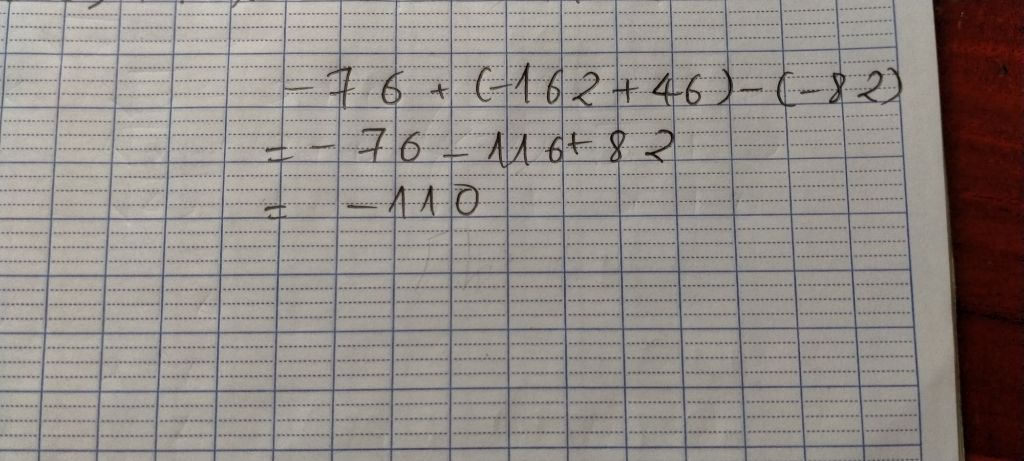 - 76 + (-162 + 46) - (-82)
= - 76 - 116 + 82
= - 110